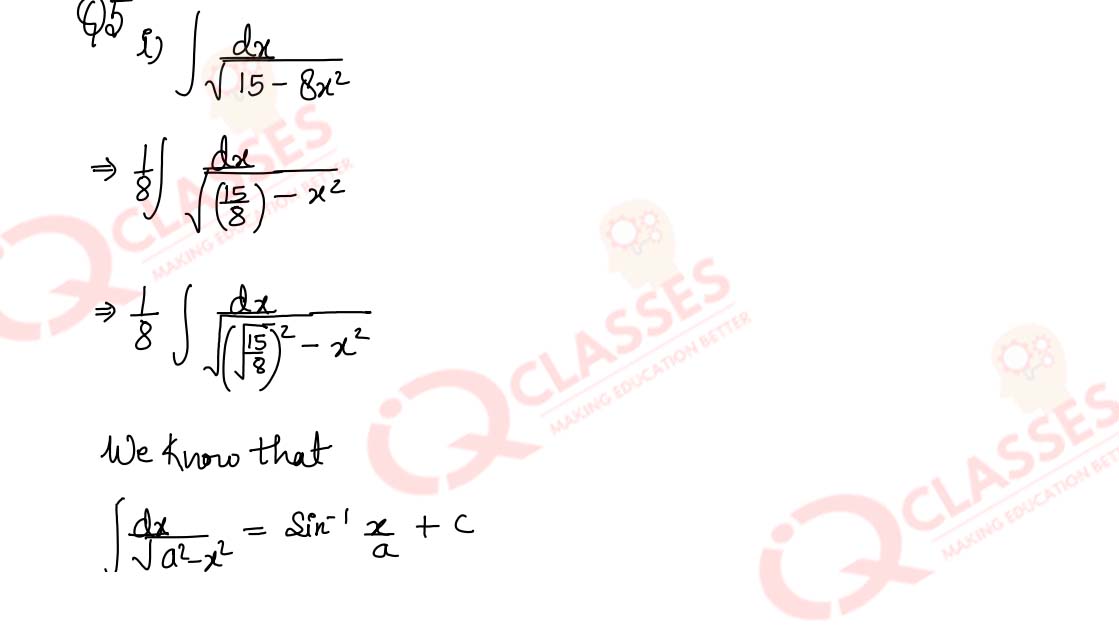 Q5 i) ∫ dx / √(15 - 8x²)
⇒ 1/8 ∫ dx / √((15/8) - x²)
⇒ 1/8 ∫ dx / √((√(15/8))² - x²)
We know that
∫ dx / √(a² - x²) = Sin⁻¹ x/a + C
iQ CLASSES
MAKING EDUCATION BETTER
iQ CLASSES
MAKING EDUCATION BETTER
iQ CLASSES
MAKING EDUCATION BETTE